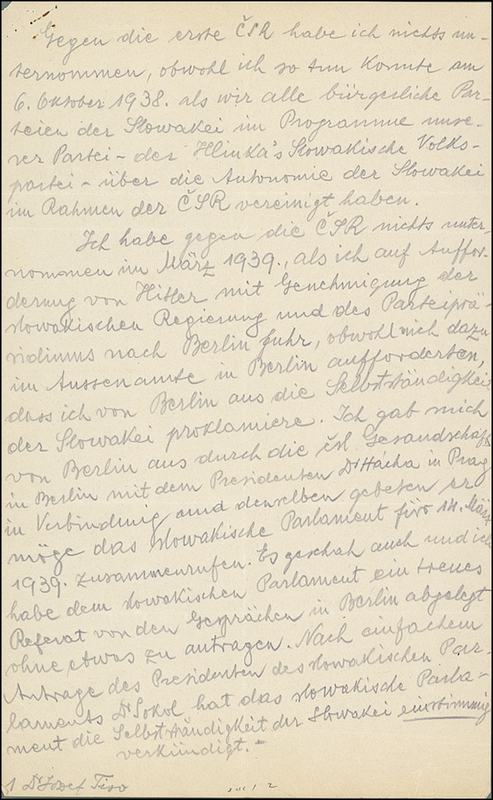 Gegen die erste ČSR habe ich nichts un-
ternommen, obwohl ich so tun konnte am
6. Oktober 1938. als wir alle bürgerliche Par-
teien der Slowakei im Programme unse-
rer Partei – der Hlinka's Slowakische Volks-
partei – über die Autonomie der Slowakei
im Rahmen der ČSR vereinigt haben.
Ich habe gegen die ČSR nichts unter-
nommen im März 1939., als ich auf Auffor-
derung von Hitler mit Genehmigung der
slowakischen Regierung und des Parteiprä-
sidiums nach Berlin fuhr, obwohl mich dazu
im Aussenamte in Berlin aufforderten,
dass ich von Berlin aus die Selbstständigkeit
der Slowakei proklamiere. Ich gab mich
von Berlin aus durch die čsl. Gesandschaft
in Berlin mit dem Presidenten Dr Hácha in Prag
in Verbindung und denselben gebeten er
möge das slowakische Parlament fürs 14. März
1939. zusammenrufen. Es geschah auch und ich
habe dem slowakischen Parlament ein treues
Referat von den Gesprächen in Berlin abgelegt
ohne etwas zu antragen. Nach einfachem
Antrage des Presidenten des slowakischen Par-
laments Dr Sokol hat das slowakische Parla-
ment die Selbstständigkeit der Slowakei einstimmig
verkündigt. –
Dr Jozef Tiso